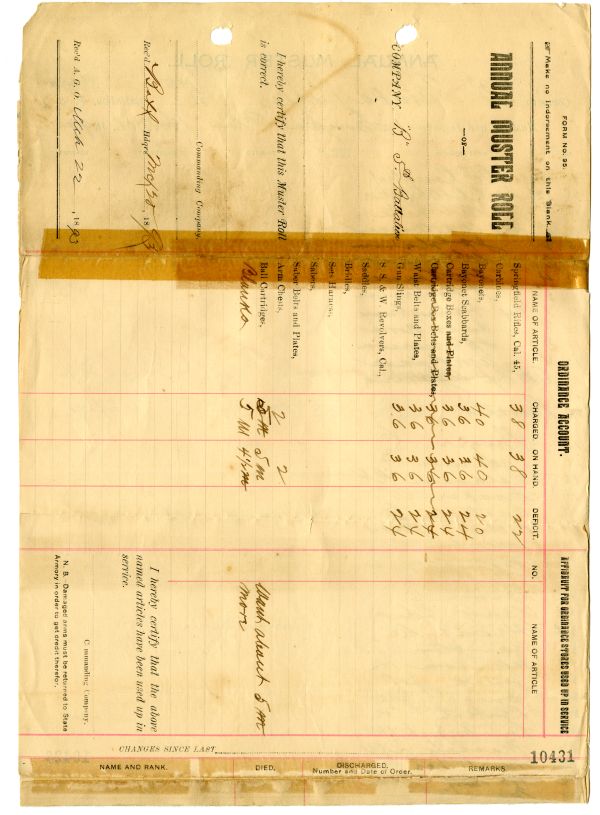 FORM No. 95.
Make no Indorsement on this Blank.
ANNUAL MUSTER ROLL
—OF—
COMPANY "B" 5th Battalion
I hereby certify that this Muster Roll
is correct.
Commanding Company.
Rec'd Batt Hdqrs 189 3
Rec'd A. G. O. 22 1893
ORDINANCE ACCOUNT.
NAME OF ARTICLE. CHARGED. ON HAND. DEFICIT.
Springfield Rifles, Cal. 45, 38 38 22
Carbines,
Bayonets, 40 40 20
Bayonet Scabbards, 36 36 24
Cartridge Boxes and Plates, 36 36 24
Cartridge Box Belts and Plates, 36 36 24
Waist Belts and Plates, 36 36 24
Gun Slings, 36 36 24
S. S. & W. Revolvers, Cal.,
Saddles,
Bridles,
Sets Harness,
Sabers,
Saber Belts and Plates,
Arm Chests, 2 2
Ball Cartridges, 5 m
Blanks 5 m 4½ m
AFFIDAVIT FOR ORDINANCE STORES USED UP IN SERVICE
NO. NAME OF ARTICLE
Want about 5 m
more
I hereby certify that the above
named articles have been used up in
service.
Commanding Company.
N. B. Damaged arms must be returned to State
Armory in order to get credit therefor.
10431
CHANGES SINCE LAST
NAME AND RANK. DIED. DISCHARGED. REMARKS.
Number and Date of Order.